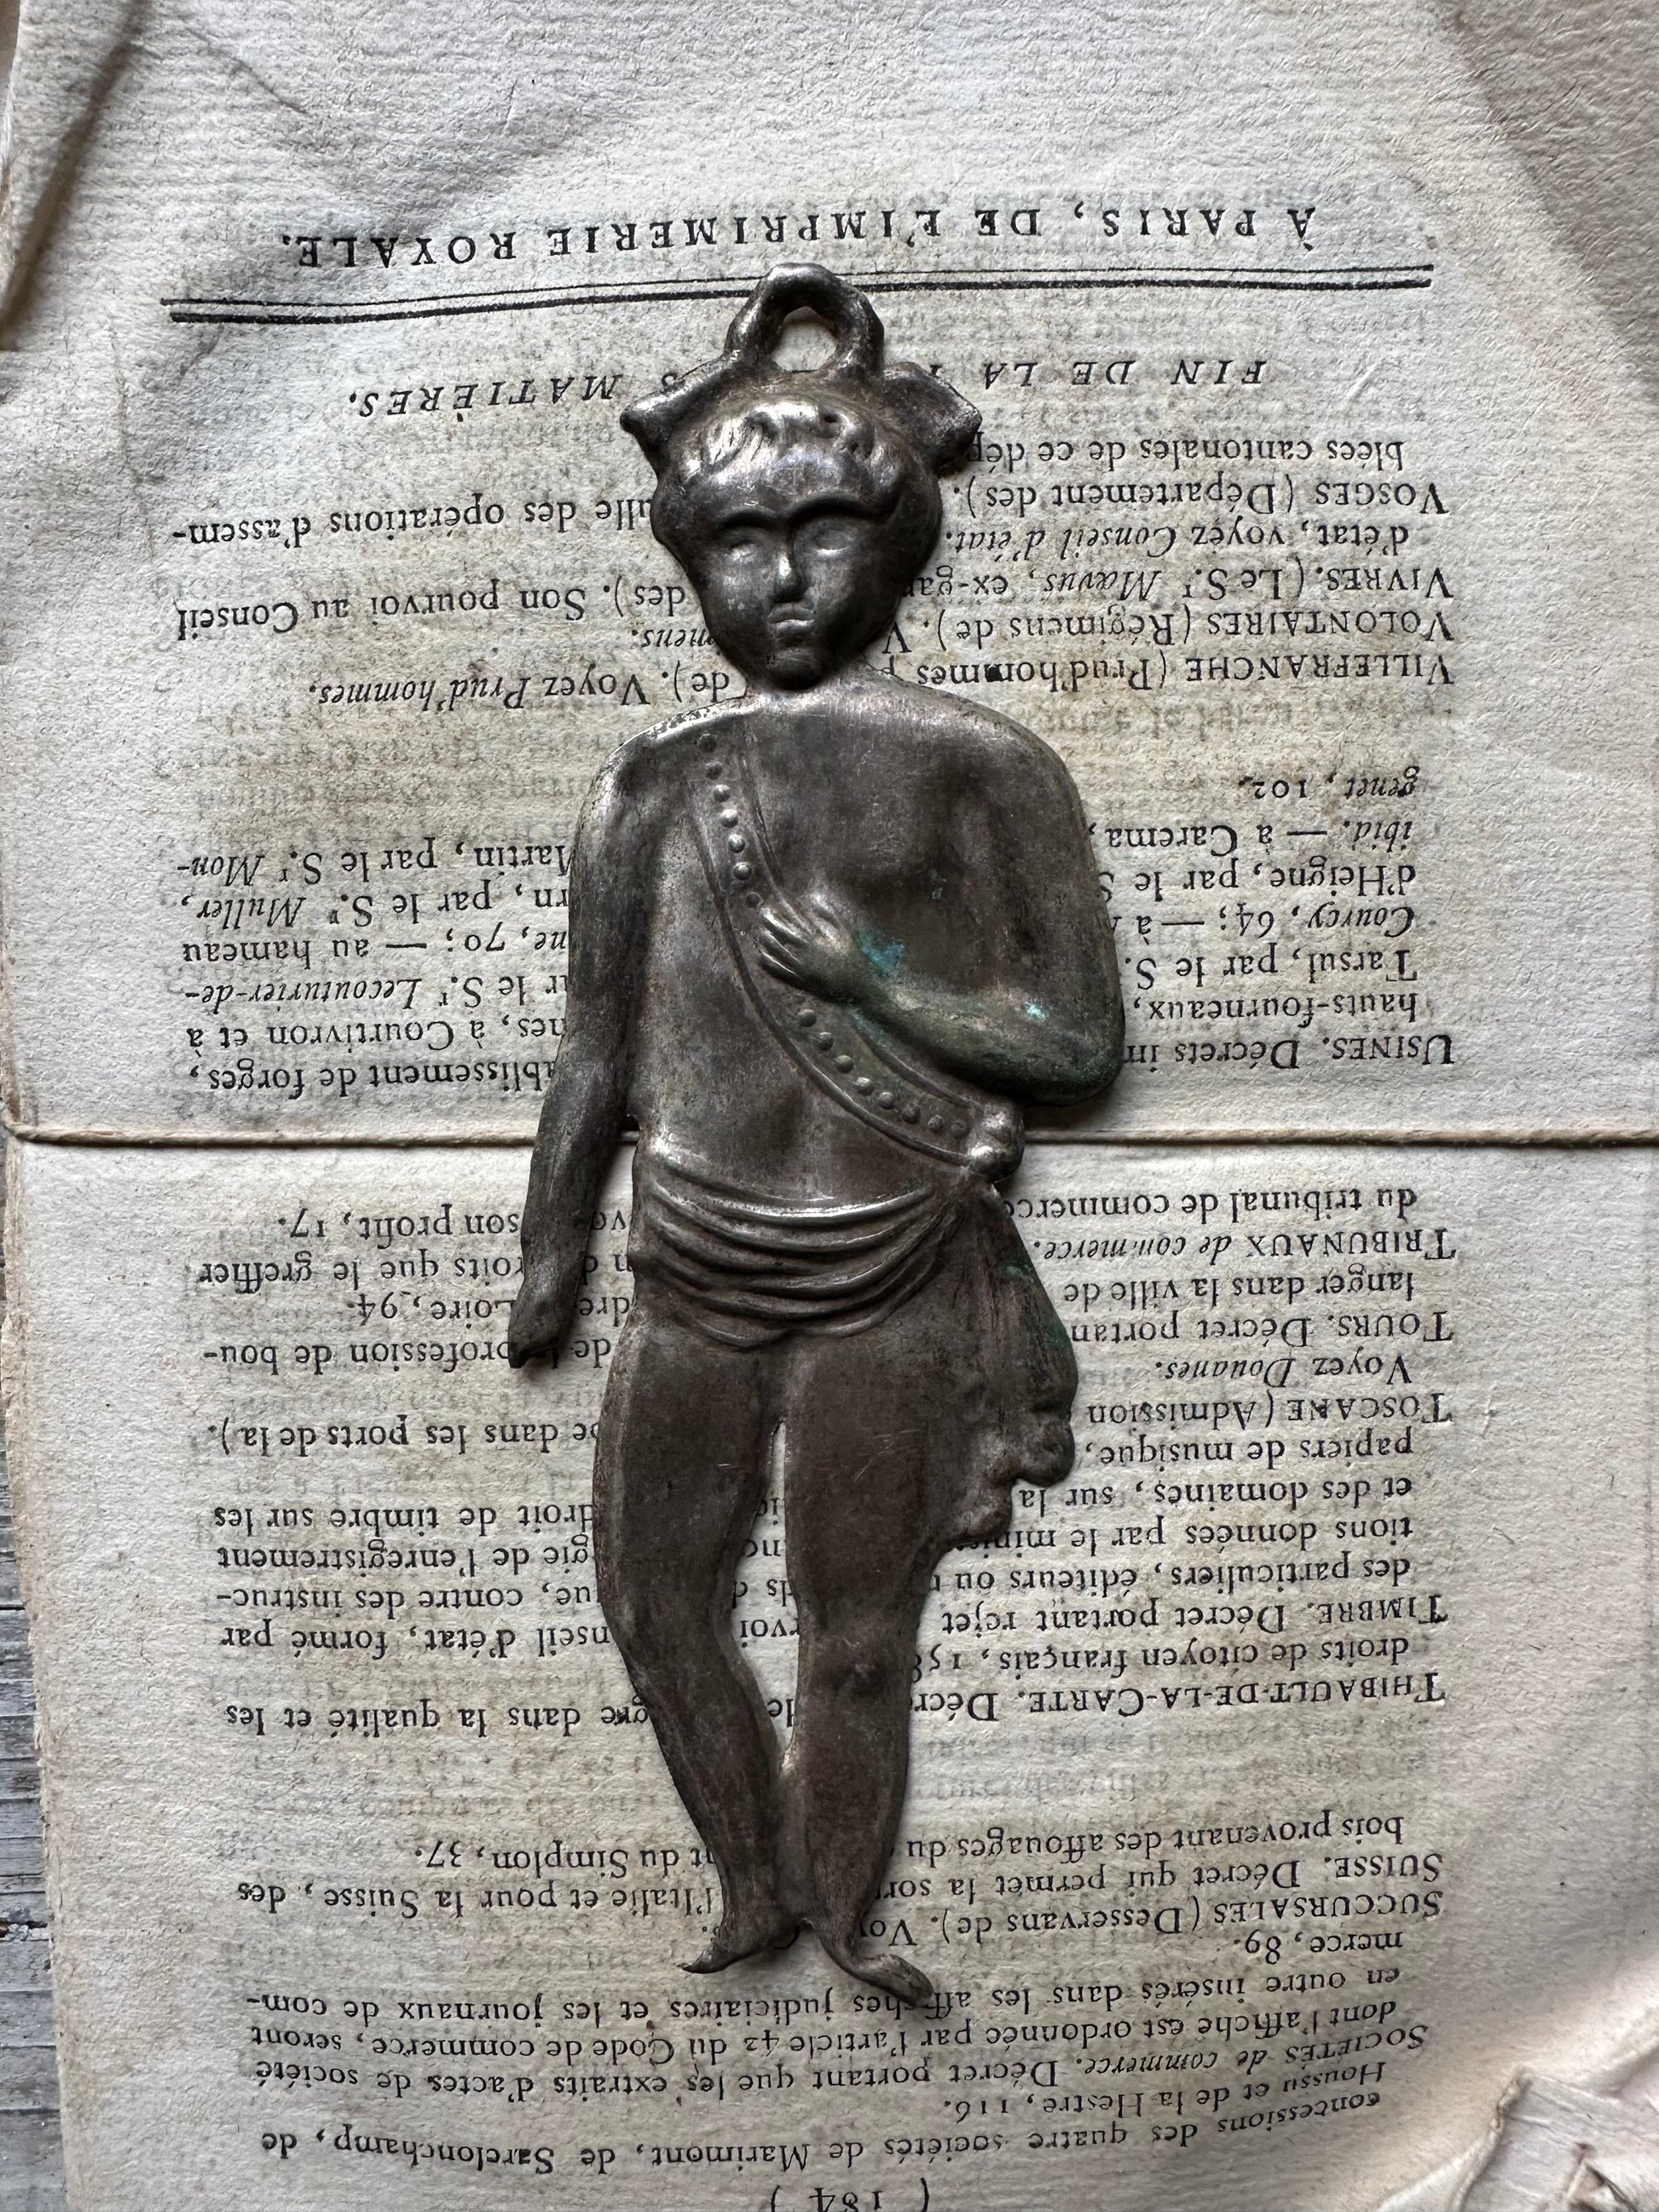 ( 184 )
concessions des quatre sociétés de Marimont, de Sarelonchamp, de
Houssu et de la Hestre, 116.
SOCIÉTÉS de commerce. Décret portant que les extraits d'actes de société
dont l'affiche est ordonnée par l'article 42 du Code de commerce, seront
en outre insérés dans les affiches judiciaires et les journaux de com-
merce, 89.
SUCCURSALES (Desservans de).
SUISSE. Décret qui permet la l'Italie et pour la Suisse, des
bois provenant des affouages du du Simplon, 37.
THIBAULT-DE-LA-CARTE. dans la qualité et les
droits de citoyen français,
TIMBRE. Décret portant rejet d'état, formé par
des particuliers, éditeurs ou contre des instruc-
tions données par le de l'enregistrement
et des domaines, sur la droit de timbre sur les
papiers de musique,
TOSCANE (Admission dans les ports de la).
Voyez Douanes.
TOURS. Décret profession de bou-
langer dans la ville de Loire, 94.
TRIBUNAUX de commerce. que le greffier
du tribunal de commerce son profit, 17.
USINES. Décrets établissement de forges,
hauts-fourneaux, à Courtivron et à
Tarsul, par le S. le S.r Lecouturier-de-
Courcy, 64; — à 70; — au hameau
d'Heigne, par le par le S.r Muller,
ibid. — à Carema Martin, par le S.r Mon-
genet, 102.
VILLEFRANCHE (Prud'hommes de). Voyez Prud'hommes.
VOLONTAIRES (Régimens de).
VIVRES. (Le S.r Mævus, des). Son pourvoi au Conseil
d'état, voyez Conseil d'état.
VOSGES (Département des). des opérations d'assem-
blées cantonales de ce
FIN DE LA MATIÈRES.
À PARIS, DE L'IMPRIMERIE ROYALE.